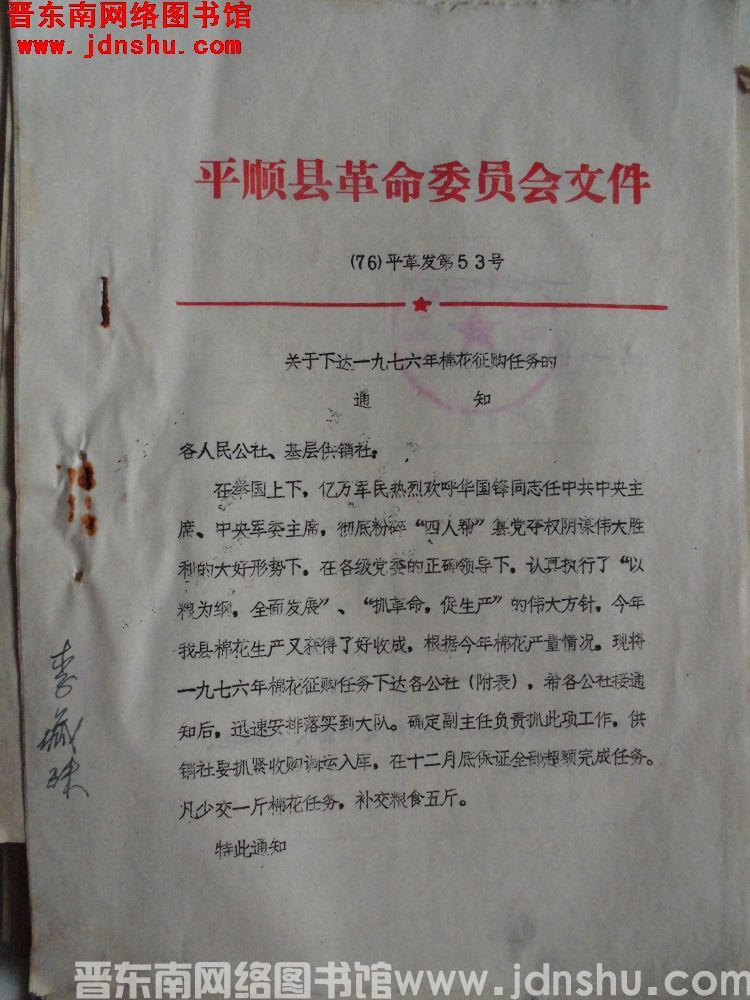 晋东南网络图书馆
www.jdnshu.com
平顺县革命委员会文件
(76)平革发第53号
关于下达一九七六年棉花征购任务的
通知
各人民公社、基层供销社:
在举国上下，亿万军民热烈欢呼华国锋同志任中共中央主
席、中央军委主席，彻底粉碎“四人帮”篡党夺权阴谋伟大胜
利的大好形势下，在各级党委的正确领导下，认真执行了“以
粮为纲，全面发展”、“抓革命，促生产”的伟大方针，今年
我县棉花生产又获得了好收成，根据今年棉花产量情况，现将
一九七六年棉花征购任务下达各公社(附表)，希各公社接通
知后，迅速安排落实到大队。确定副主任负责抓此项工作，供
销社要抓紧收购调运入库，在十二月底保证全部超额完成任务。
凡少交一斤棉花任务，补交粮食五斤。
特此通知
李
珠
晋东南网络图书馆www.jdnshu.com